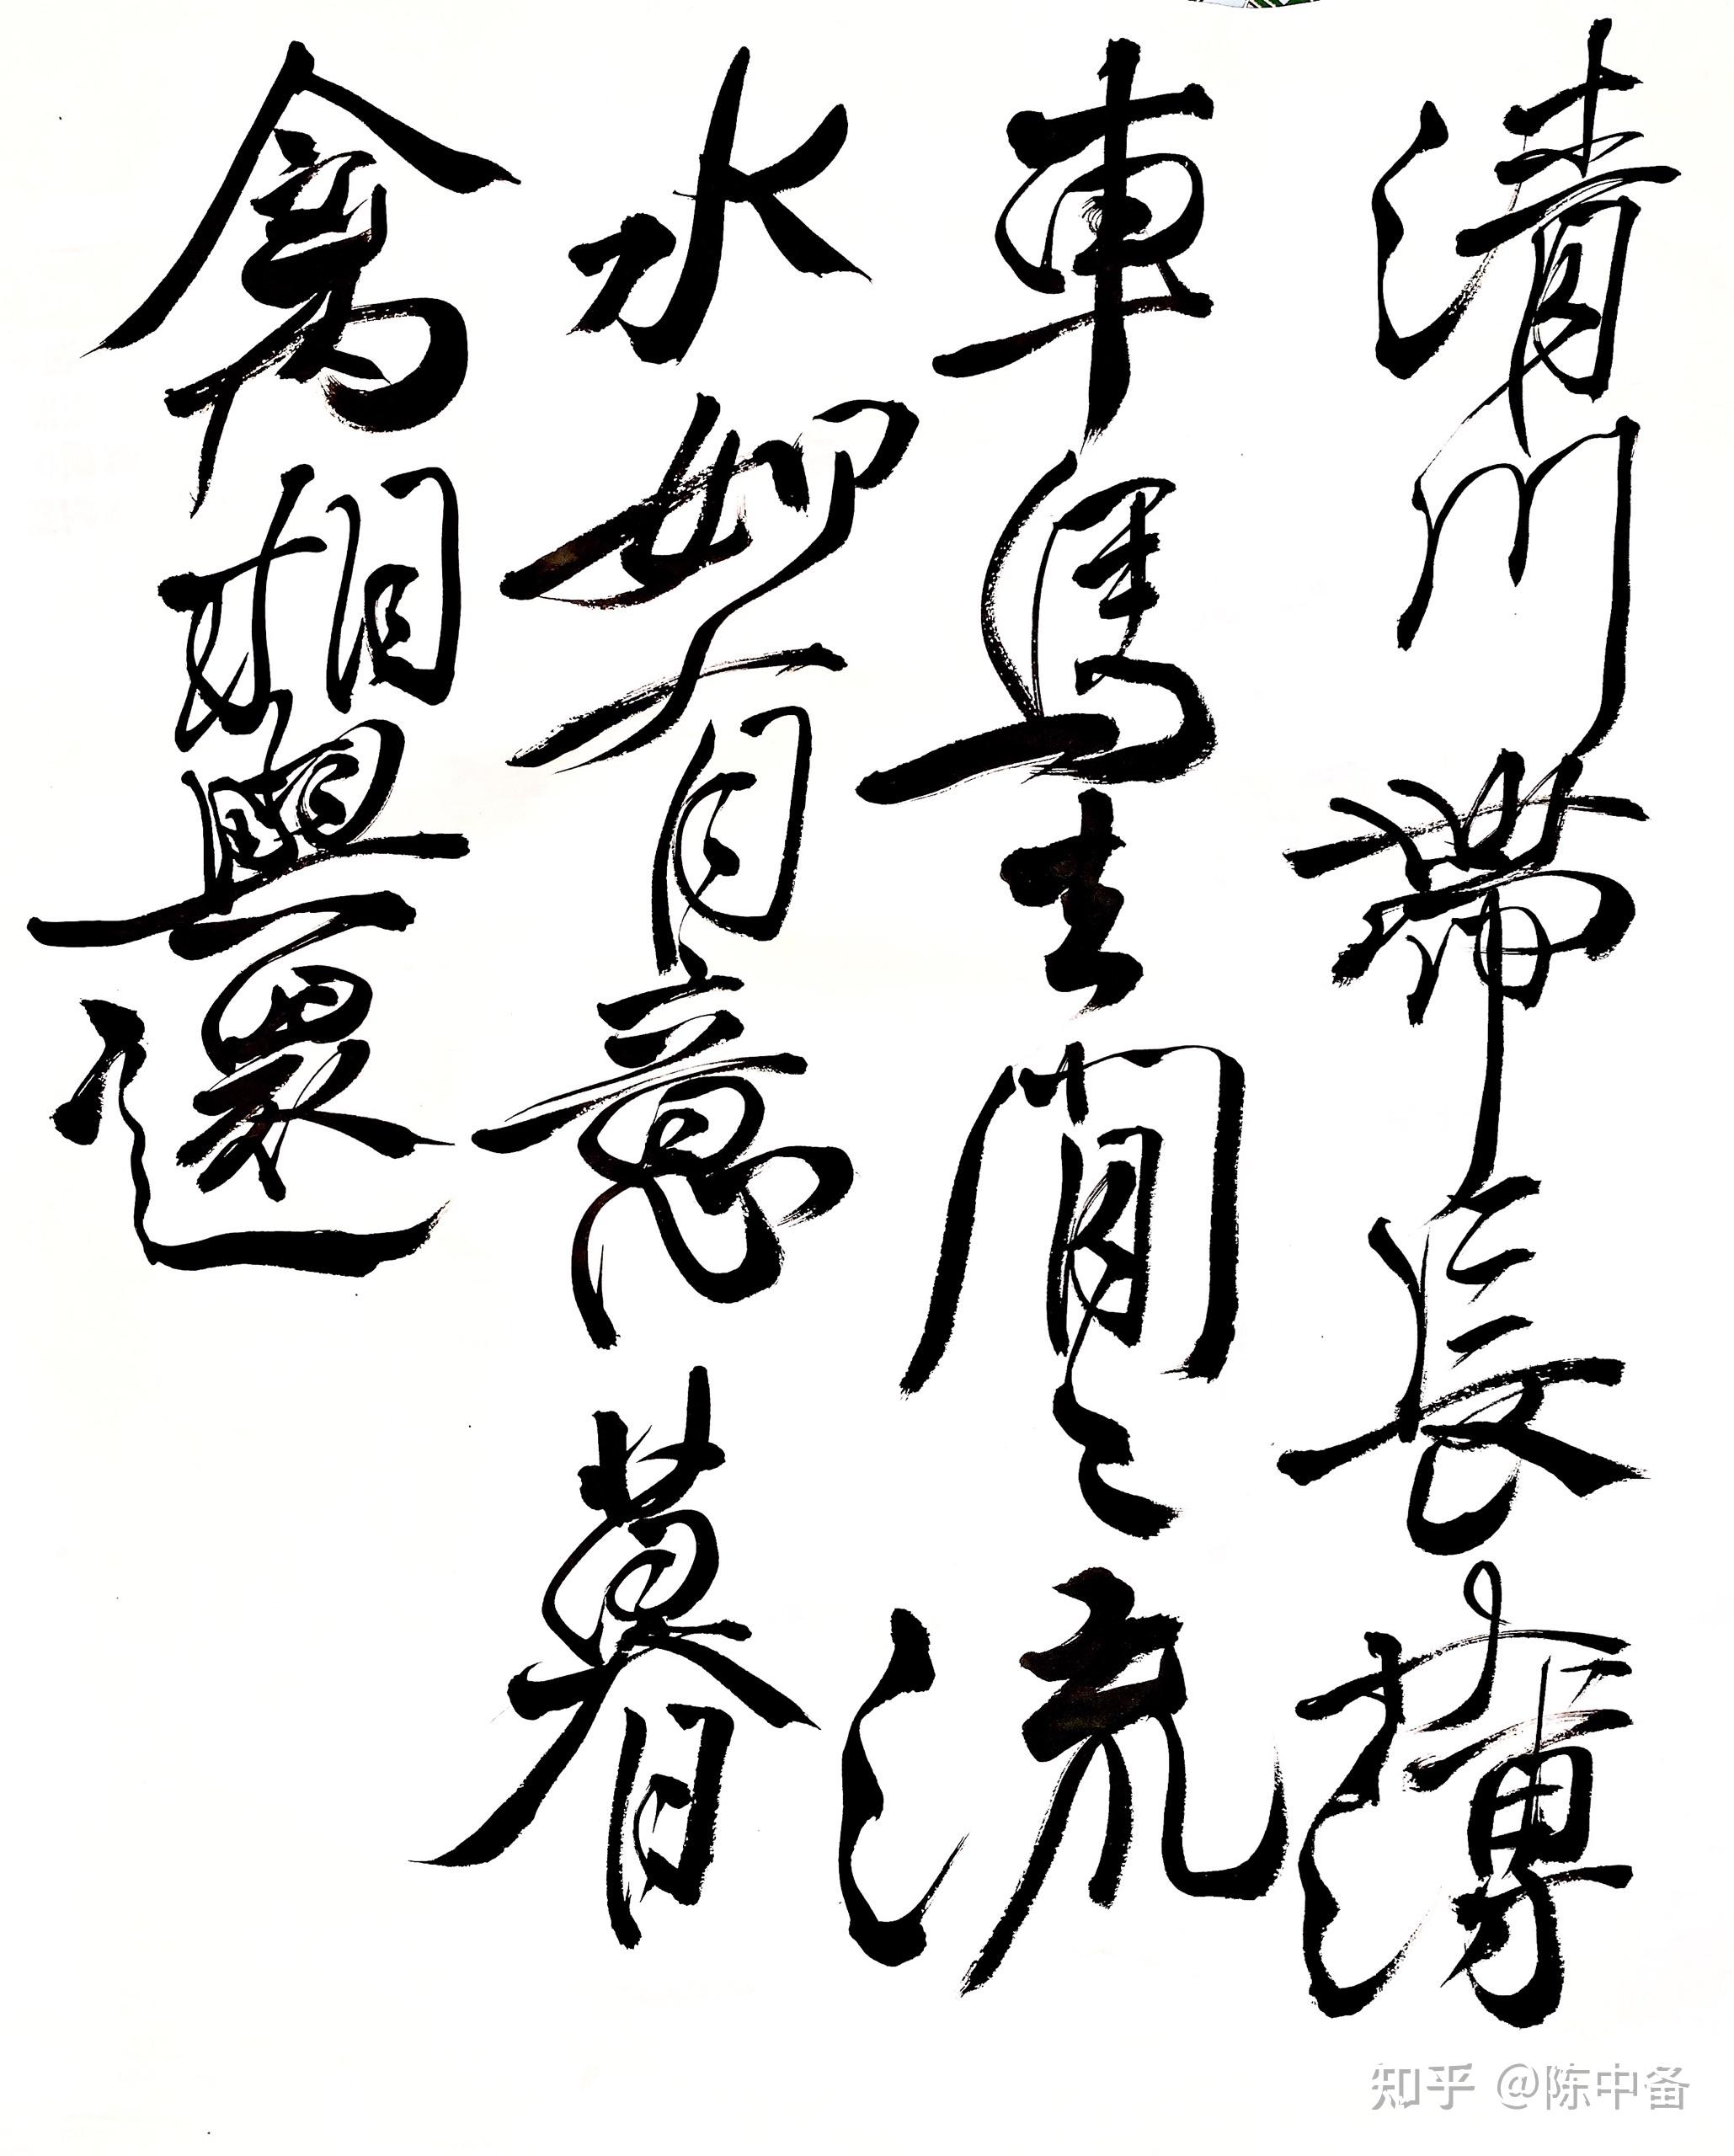 清川帶長薄
車馬去閒々流
水如有意暮
禽相與還
知乎 @陈中备